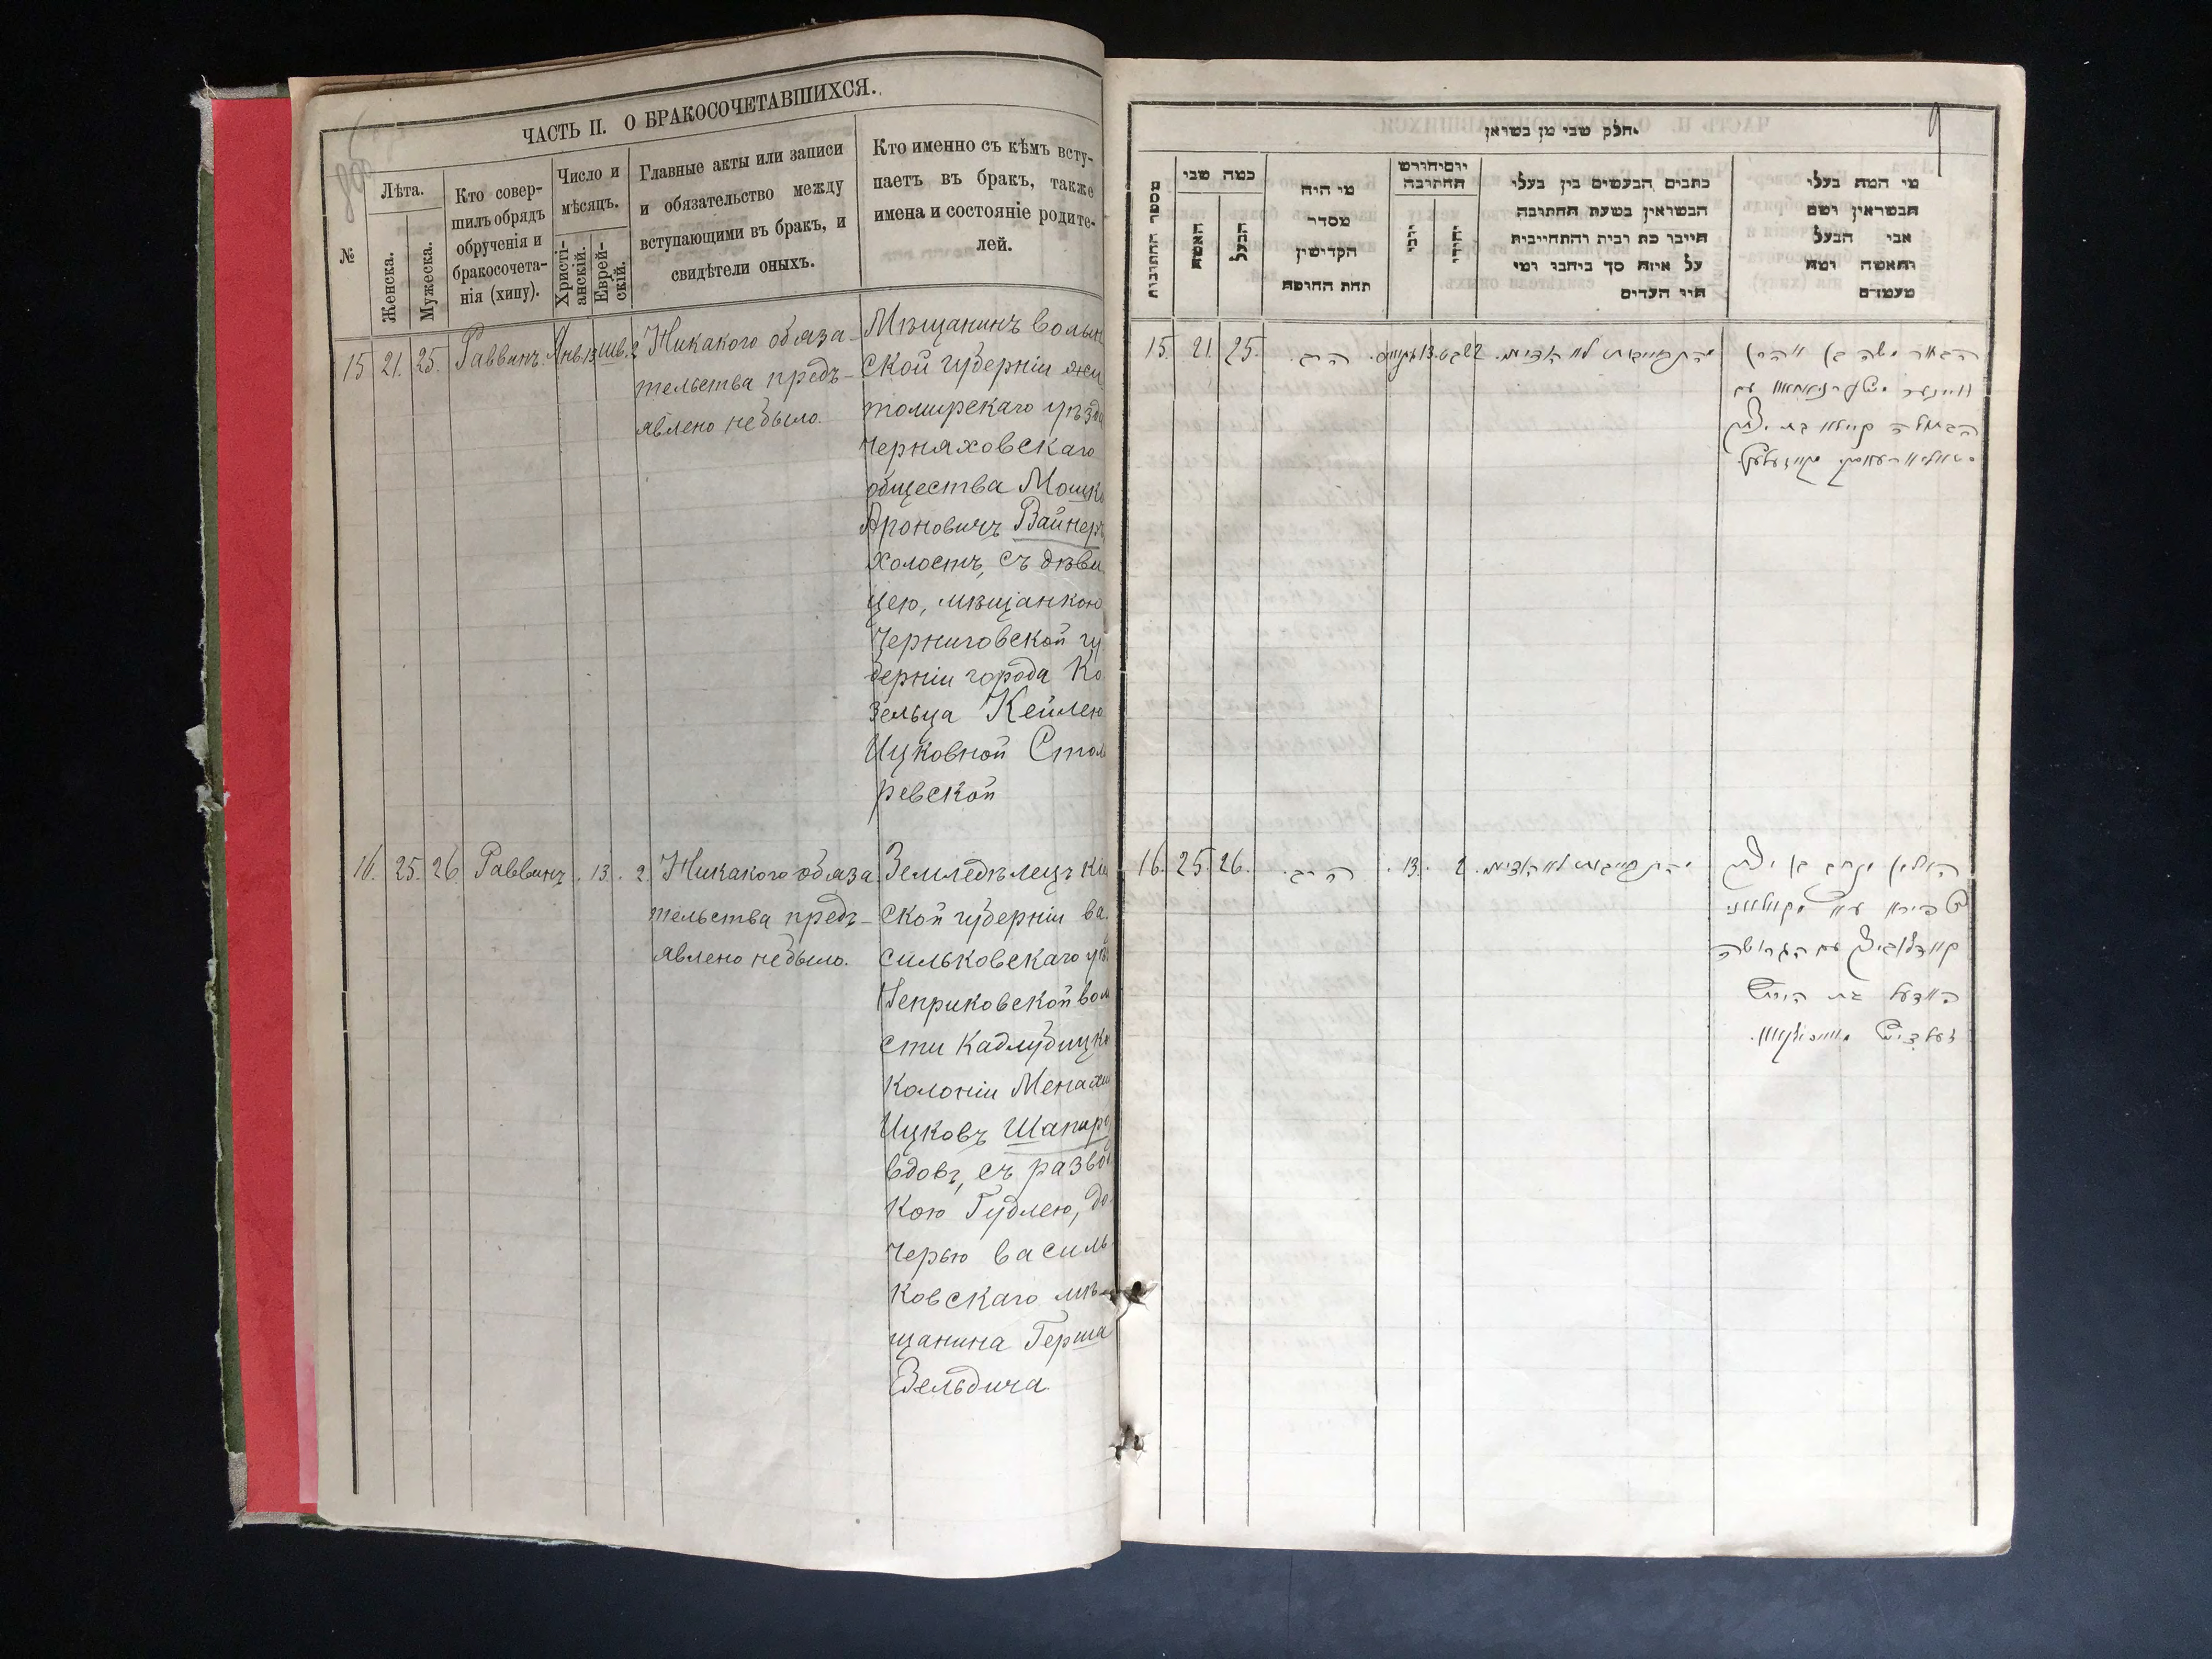 ЧАСТЬ II. О БРАКОСОЧЕТАВШИХСЯ.
№
Лѣта.
Женска.
Мужеска.
Кто совер-
шилъ обрядъ
обрученія и
бракосочета-
нія (хипу).
Число и
мѣсяцъ.
Христі-
анскій.
Еврей-
скій.
Главные акты или записи
и обязательство между
вступающими въ бракъ, и
свидѣтели оныхъ.
Кто именно съ кѣмъ всту-
паетъ въ бракъ, также
имена и состояніе родите-
лей.
15 21. 25. Раввинъ. Янв. 13 Шв. 2
Никакого обяза-
тельства предъ-
явлено небыло.
Мѣщанинъ Волын
ской губерніи жи
томирскаго уѣзда
Черняховскаго
общества Мошко
Ароновичъ Вайнеръ
холостъ, съ дѣви
цею, мѣщанкою
Черниговской гу
берніи города Ко
зельца Кейлею
Ицковной Стол
ревской
16. 25. 26. Раввинъ. 13. 2.
Никакого обяза
тельства предъ-
явлено небыло.
Земледѣлецъ Кіе
ской губерніи ва
сильковскаго уѣз
Чеприковской вол
сти Кадлубицко
колоніи Менахи
Ицковъ Шапиро
вдовъ, съ развод
кою Гудлею, до
черью василь
ковскаго мѣ
щанина Герша
Зельдича
9
חלק שני מן נשואן
מספר החתונות
כמה שני
האשה
הבעל
מי היה
מסדר
הקדושין
תחת החופה
יום וחודש
החתונה
נוצרי
יהודי
כתבים הנעשים בין בעלי
הנשואין בשעת החתונה
על איזה סך ביחבו ומי
היו העדים
מי המה בעלי
הנשואין ושם
אבי הבעל
והאשה ומה
מעמדם
15. 21. 25. הרב. 13 2 שבט
התחייבות לא הציגו.
הבחור משה בן אהרן
הבתולה קיילא בת יצחק
16. 25. 26. הרב. 13. 2.
התחייבות לא הציגו.
האלמן מנחם בן יצחק
שפירא
עם הגרושה
הודעל בת הירש